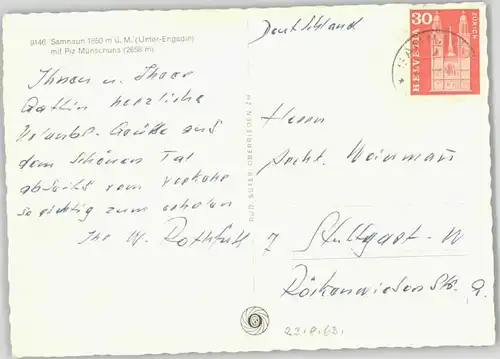 9146 Samnaun 1850 m ü. M. (Unter-Engadin)
mit Piz Münschuns (2658 m)
Ihnen u. Ihrer
Gattin herzliche
Urlaubs-Grüße aus
dem schönen Tal
abseits vom Verkehr
so richtig zum erholen
Ihr W. Rothfuß
RUD. SUTER, OBERRIEDEN ZH
Deutschland
30
HELVETIA
ZÜRICH
Herrn
Archt. Weinmann
7 Stuttgart-W
23.8.63.